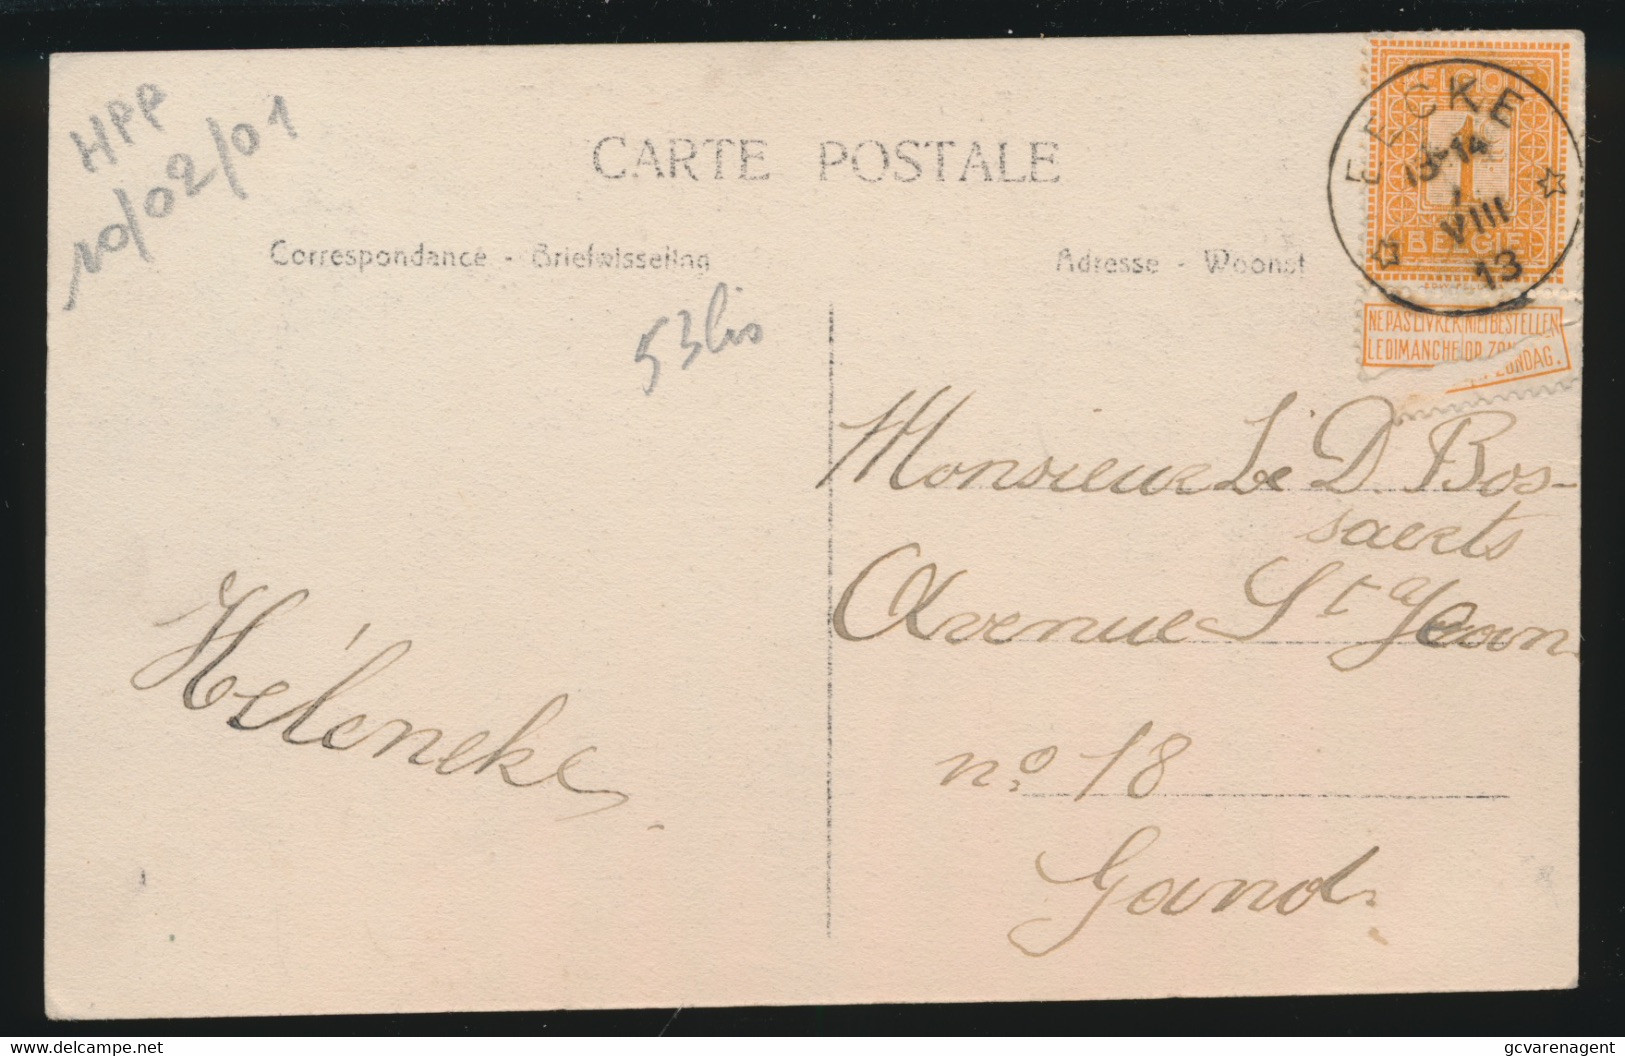 HPP
10/02/01
CARTE POSTALE
Correspondance - Briefwisseling
Adresse - Woonst
53bis
BELGIQUE
1
BELGIË
EECKE
13-14
1
VIII
13
NE PAS LIVRER NIET BESTELLEN
LE DIMANCHE OP ZONDAG.
Monsieur Le D. Bos-
saerts
Avenue St Jean
no. 18
Gand.
Héleneke
delcampe.net
gcvarenagent